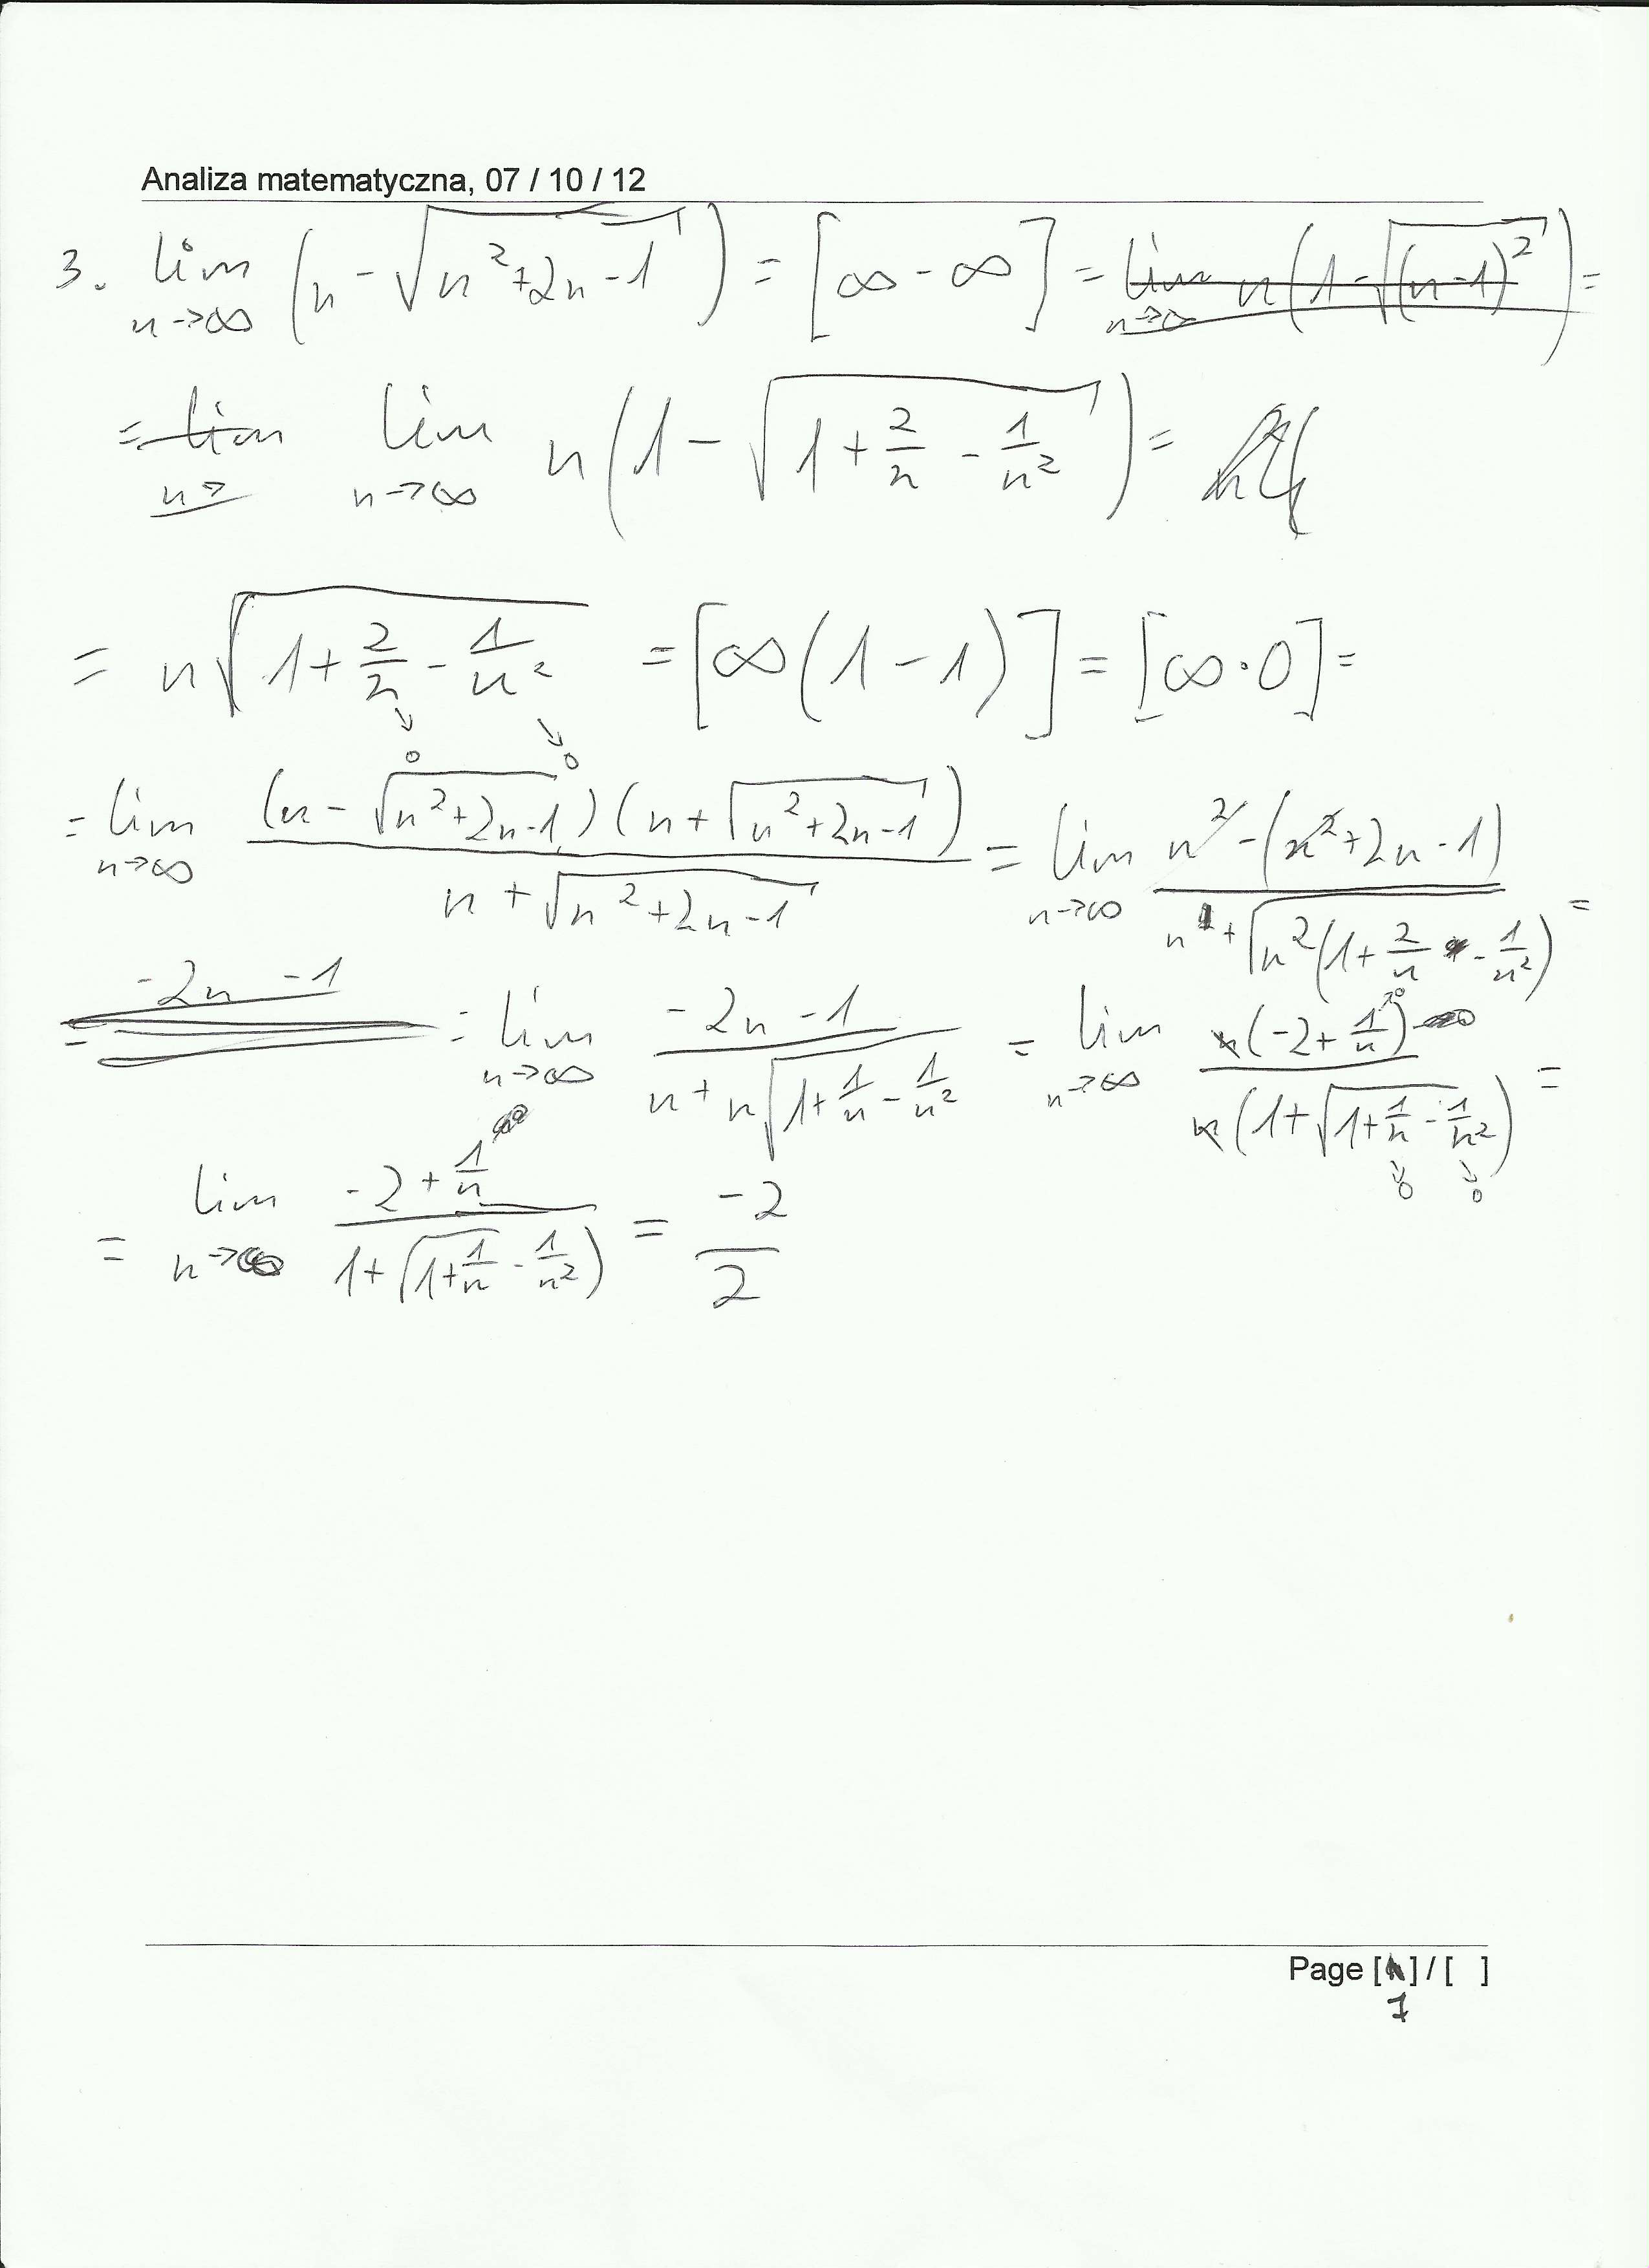 Analiza matematyczna, 07 / 10 / 12
3. lim n→∞ (n - √(n²+2n-1)) = [∞ - ∞] = lim n→∞ n(1-√((n-1)²)) =
= lim n→ lim n→∞ n(1 - √(1+2/n - 1/n²)) =
= n√(1+2/n - 1/n²) = [∞(1-1)] = [∞·0] =
↘0 ↘0
= lim n→∞ (n-√(n²+2n-1))(n+√(n²+2n-1)) / (n+√(n²+2n-1)) = lim n→∞ (n²-(n²+2n-1)) / (n + √(n²(1+2/n - 1/n²))) =
= -2n -1 = lim n→∞ (-2n-1) / (n+n√(1+1/n - 1/n²)) = lim n→∞ n(-2+1/n)↗0 / n(1+√(1+1/n - 1/n²)) =
↘0 ↘0
= lim n→∞ (-2+1/n) / (1+√(1+1/n - 1/n²)) = -2/2
Page [ ] / [ ]
1